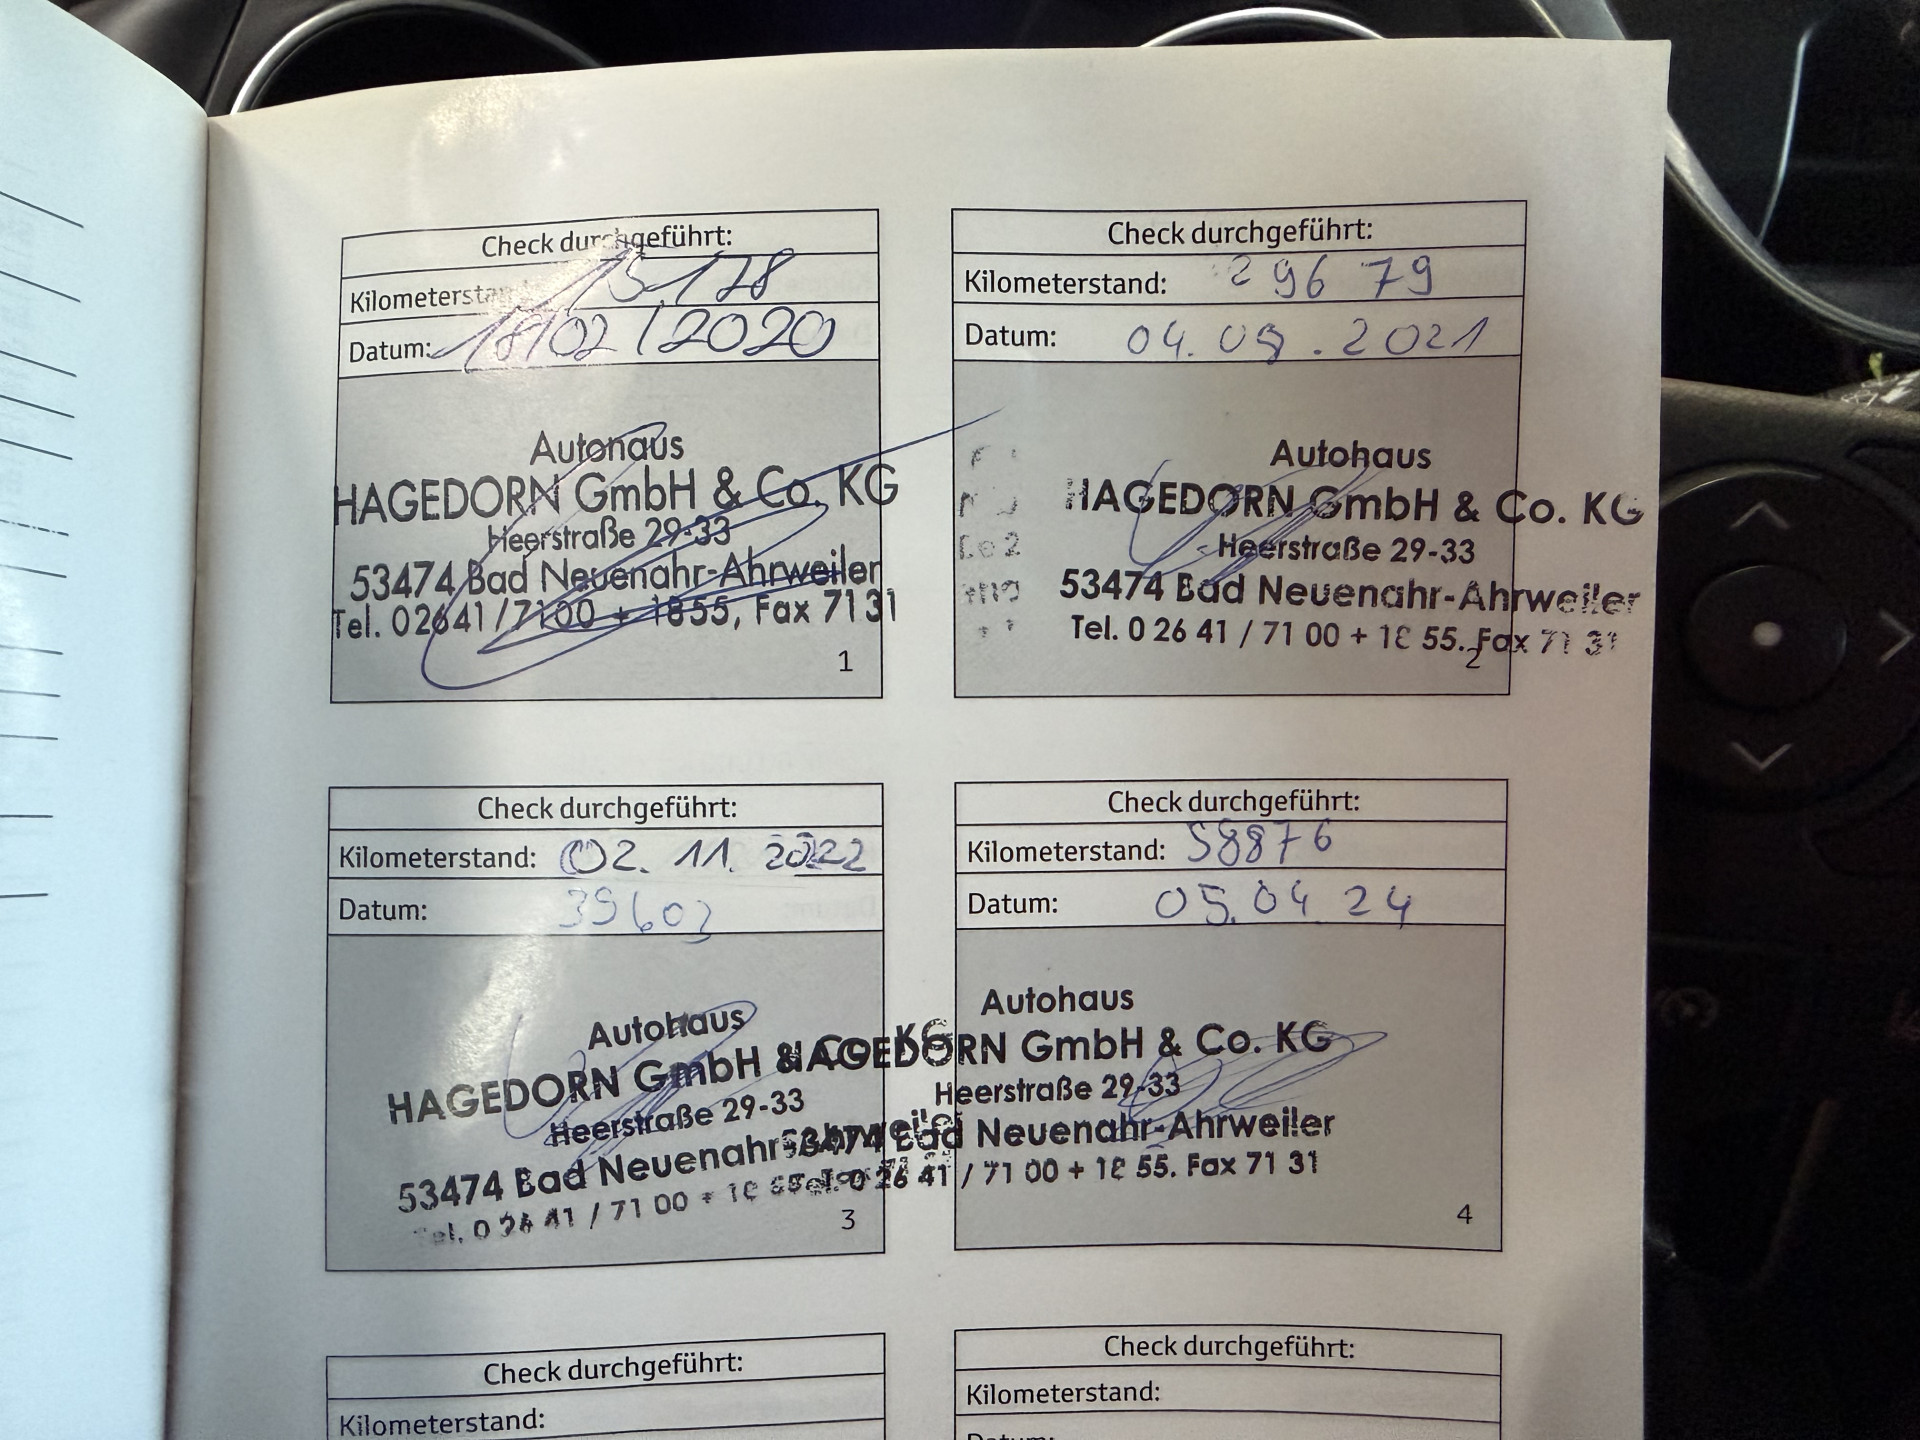 Check durchgeführt:
Kilometerstand:
Datum: 18/02/2020
Autohaus
HAGEDORN GmbH & Co. KG
Heerstraße 29-33
53474 Bad Neuenahr-Ahrweiler
Tel. 02641/7100 + 1855, Fax 7131
1
Check durchgeführt:
Kilometerstand: 29679
Datum: 04.09.2021
Autohaus
HAGEDORN GmbH & Co. KG
Heerstraße 29-33
53474 Bad Neuenahr-Ahrweiler
Tel. 0 26 41 / 71 00 + 18 55. Fax 71 31
2
Check durchgeführt:
Kilometerstand: 02.11.2022
Datum: 39603
Autohaus
HAGEDORN GmbH & Co. KG
Heerstraße 29-33
53474 Bad Neuenahr-Ahrweiler
Tel. 0 26 41 / 71 00 + 18 55.
3
Check durchgeführt:
Kilometerstand: 58876
Datum: 05.04.24
Autohaus
HAGEDORN GmbH & Co. KG
Heerstraße 29-33
53474 Bad Neuenahr-Ahrweiler
Tel. 0 26 41 / 71 00 + 18 55. Fax 71 31
4
Check durchgeführt:
Kilometerstand:
Check durchgeführt:
Kilometerstand:
Datum: